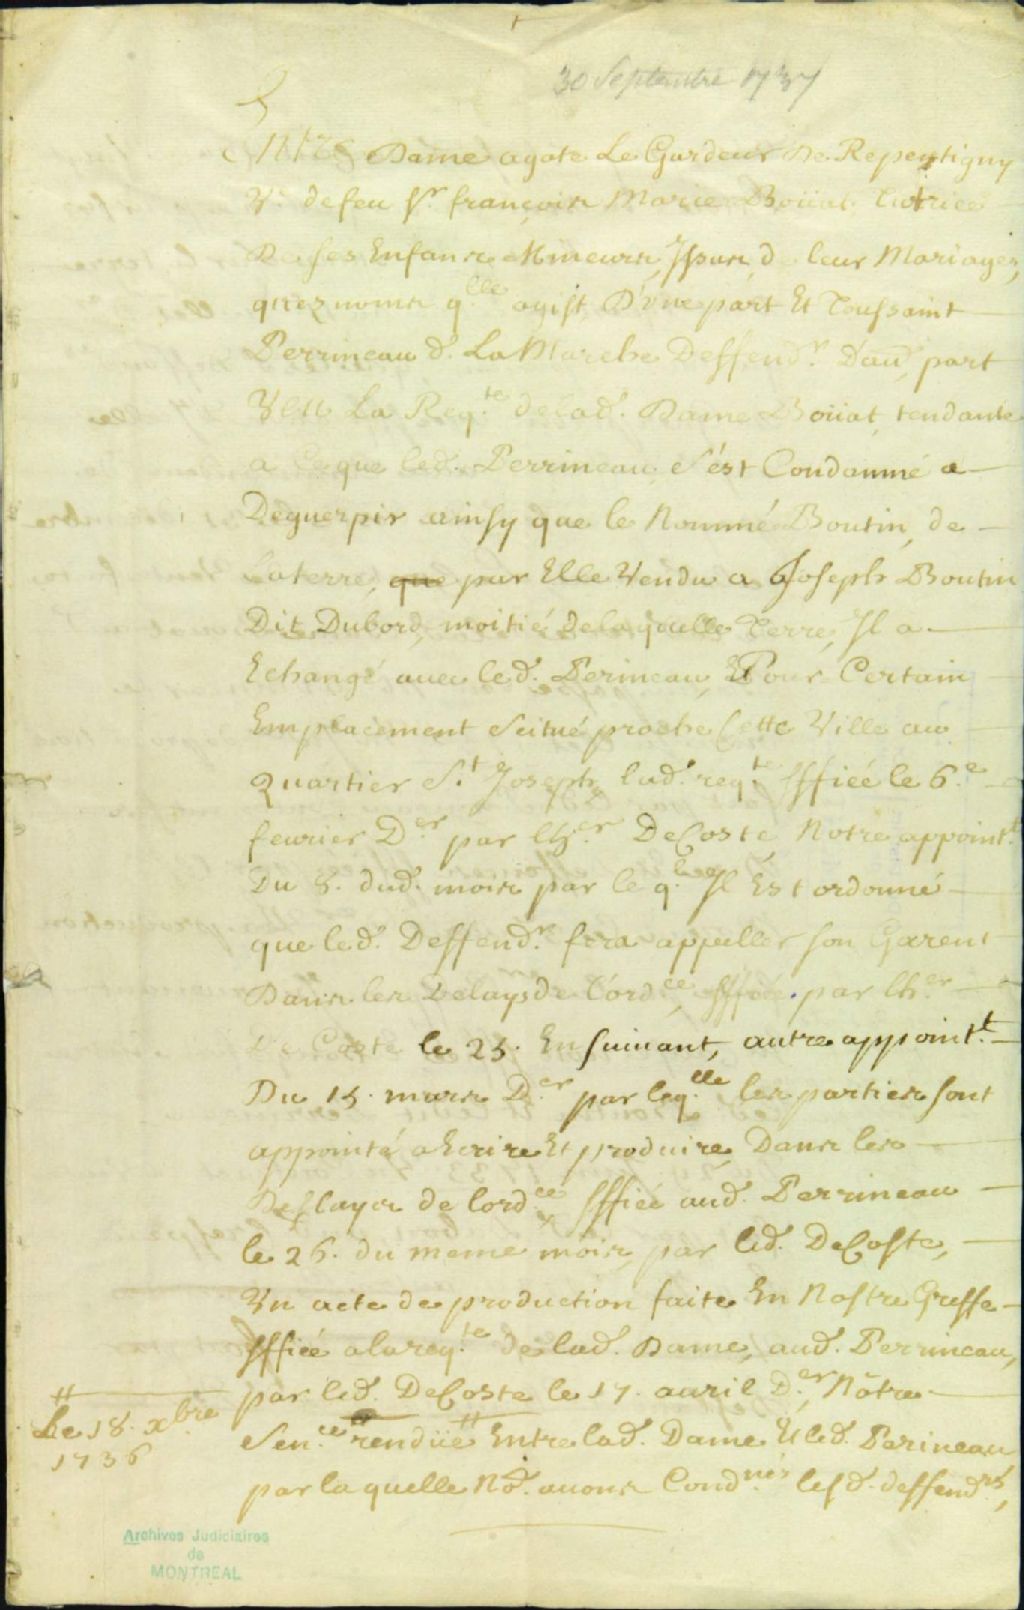 30 Septembre 1737
Entre Dame agate Le Gardeur De Repentigny
Ve. defeu Sr. françois Marie Boüat Tutrice
De ses Enfans Mineurs, Issus de leur Mariage,
quez noms q.lle agist, D'vne part Et Toussaint
Perrineau d. LaMarche Deffend.r D'au, part
VEU La Req.te delad. Dame Boüat, tendante
a Ceque led. Perrineau s'ést Condamné a
Deguerpir ainsy que le Nommé Boutin, de
Laterre, que par Elle Vendu a Joseph Boutin
Dit Dubord, moitié delaquelle Terre, Il a
Echangé avec led. Perineau, Pour Certain
Emplacement Scitué proche Cette Ville au
Quartier S.t Joseph, lad. req.te sffiée le 6.e
feurier D.er par lh.er DeCoste, Notre appoint.t
Du 8. dud. mois par le q.lle Il Est ordonné
que led. Deffend.r fera appeller son Garent
Dans les Delays de l'ord.ce, sffiée par lh.er
De Coste le 23. Ensuivant, autre appoint.t
Du 15. mars D.er par leq.lle les parties sont
appointé a Ecrire Et produire, Dans les
Deslays de lord.ce, sffiée aud. Perrineau
le 26. du meme mois, par led. DeCoste,
Vn acte de production faite En Nostre Greffe
sffiée alareq.te de lad. Dame, aud. Perrineau,
par led. DeCoste le 17. auril D.er, Nôtre
Sen.ce rendüe # Entre lad. Dame Et led. Perineau
par laquelle No.d. auons Cond.nés lesd. deffend.rs,
#
Le 18. xbre
1736
Archives Judiciaires
de
MONTREAL